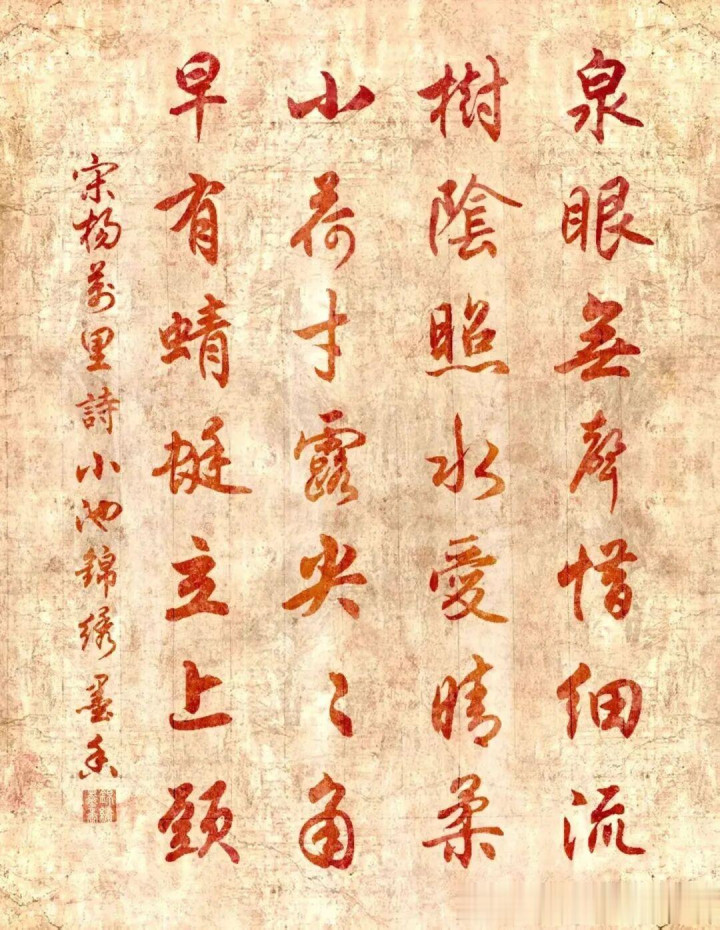 泉眼無聲惜細流
樹陰照水愛晴柔
小荷才露尖〻角
早有蜻蜓立上頭
宋楊萬里詩小池錦繡墨香